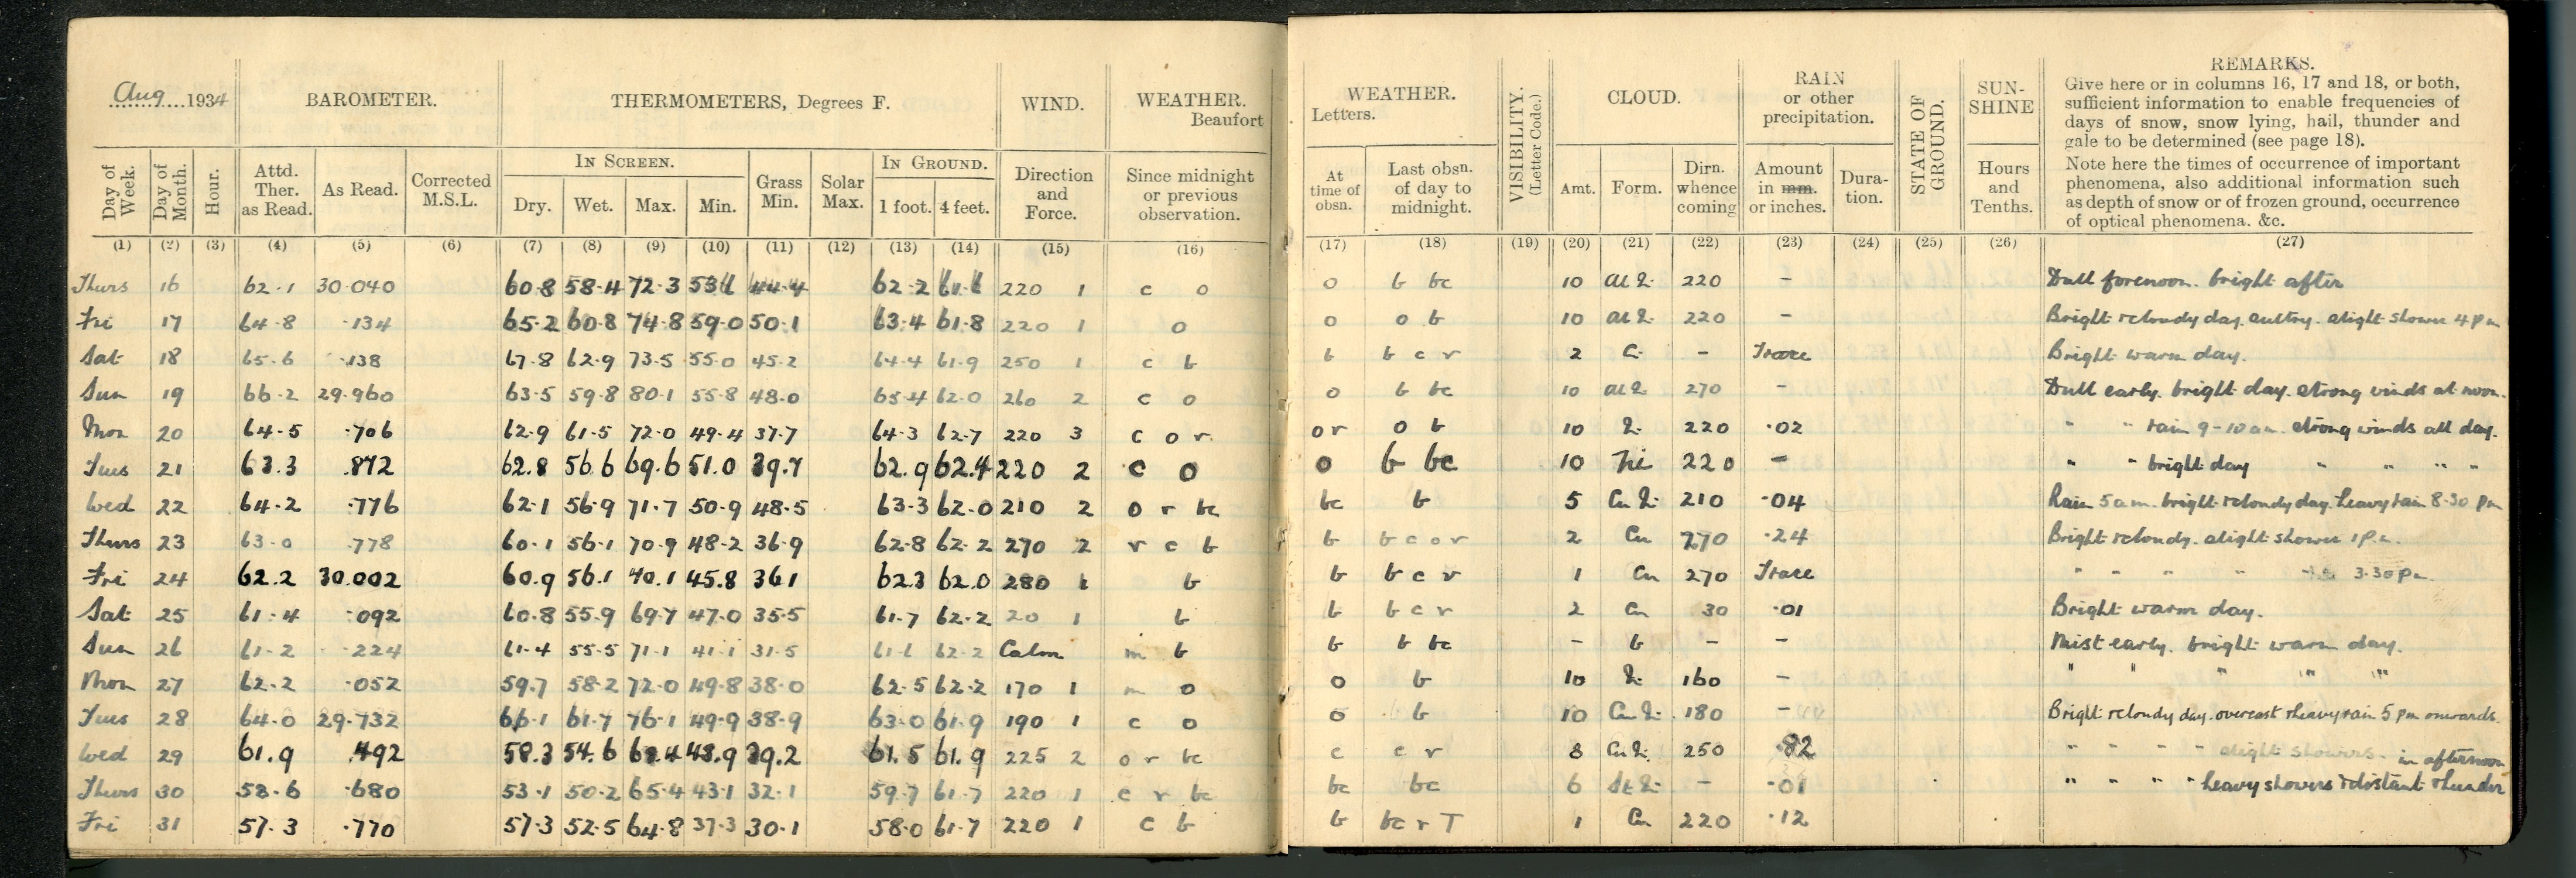 Aug 1934 BAROMETER. THERMOMETERS, Degrees F. WIND. WEATHER. Beaufort
Day of Week. Day of Month. Hour. Attd. Ther. as Read. As Read. Corrected M.S.L. IN SCREEN. Dry. Wet. Max. Min. Grass Min. Solar Max. IN GROUND. 1 foot. 4 feet. Direction and Force. Since midnight or previous observation.
(1) (2) (3) (4) (5) (6) (7) (8) (9) (10) (11) (12) (13) (14) (15) (16)
Thurs 16 62.1 30.040 60.8 58.4 72.3 44.4 62.2 220 1 c o
Fri 17 64.8 .134 65.2 60.8 74.8 59.0 50.1 63.4 61.8 220 1 o
Sat 18 65.6 .138 67.8 62.9 73.5 55.0 45.2 64.4 61.9 250 1 c b
Sun 19 66.2 29.960 63.5 59.8 80.1 55.8 48.0 65.4 62.0 260 2 c o
Mon 20 64.5 .706 62.9 61.5 72.0 49.4 37.7 64.3 62.7 220 3 c o r
Tues 21 63.3 .872 62.8 56.6 69.6 51.0 39.7 62.9 62.4 220 2 c o
Wed 22 64.2 .776 62.1 56.9 71.7 50.9 48.5 63.3 62.0 210 2 o r bc
Thurs 23 63.0 .778 60.1 56.1 70.9 48.2 36.9 62.8 62.2 270 2 r c b
Fri 24 62.2 30.002 60.9 56.1 70.1 45.8 36.1 62.3 62.0 280 1 b
Sat 25 61.4 .092 60.8 55.9 69.7 47.0 35.5 61.7 62.2 20 1 b
Sun 26 61.2 .224 61.4 55.5 71.1 41.1 31.5 61.6 62.2 Calm m b
Mon 27 62.2 .052 59.7 58.2 72.0 49.8 38.0 62.5 62.2 170 1 m o
Tues 28 64.0 29.732 66.1 61.7 76.1 49.9 38.9 63.0 61.9 190 1 c o
Wed 29 61.9 .492 58.3 54.6 48.9 39.2 61.5 61.9 225 2 o r bc
Thurs 30 58.6 .680 53.1 50.2 65.4 43.1 32.1 59.7 61.7 220 1 c r bc
Fri 31 57.3 .770 57.3 52.5 64.8 37.3 30.1 58.0 61.7 220 1 c b
WEATHER. Letters. VISIBILITY. (Letter Code.) CLOUD. RAIN or other precipitation. STATE OF GROUND. SUNSHINE REMARKS.
Give here or in columns 16, 17 and 18, or both,
sufficient information to enable frequencies of
days of snow, snow lying, hail, thunder and
gale to be determined (see page 18).
Note here the times of occurrence of important
phenomena, also additional information such
as depth of snow or of frozen ground, occurrence
of optical phenomena. &c.
At time of obsn. Last obsn. of day to midnight. Amt. Form. Dirn. whence coming Amount in mm. or inches. Duration. Hours and Tenths.
(17) (18) (19) (20) (21) (22) (23) (24) (25) (26) (27)
o b bc 10 220 - Dull forenoon. bright after
o o b 10 220 - Bright & cloudy day. sultry. slight shower 4 pm
b b c r 2 - Trace Bright warm day.
o b bc 10 270 - Dull early. bright day. strong winds at noon.
or o b 10 220 .02 " " rain 9-10 am. strong winds all day.
o b bc 10 220 - " " bright day " " " "
bc b 5 210 .04 Rain 5 am. bright & cloudy day. heavy rain 8.30 pm
b b c o r 2 Cu 270 .24 Bright & cloudy. slight shower 1 p.m.
b b c r 1 Cu 270 Trace " " " " 3.30 pm.
b b c r 2 Cu 30 .01 Bright warm day.
b b bc - b - - Mist early. bright warm day.
o b 10 160 - " " " " "
o b 10 180 - Bright & cloudy day. overcast & heavy rain 5 pm onwards.
c c r 8 250 .82 " " " " slight showers. in afternoon
bc bc 6 - .01 " " " " heavy showers & distant thunder
b bc r T 1 Cu 220 .12